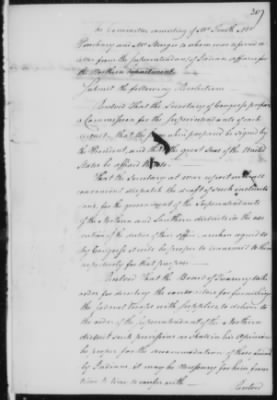 207
The Committee consisting of Mr Smith Mr
Pinckney and Mr Monroe to whom was referred a
letter from the superintendant of Indian affairs for
the Northern department
Submit the following Resolutions
Resolved That the Secretary of Congress prepare
a Commission for the Superintendants of each
district, that the when prepared be signed by
the President, and that the great Seal of the United
States be affixed
That the Secretary at war report with all
convenient dispatch the draft of such instructions
for the government of the Superintendants
of the Northern and Southern districts in the execution
of the duties of their office, as when agreed to
by Congress it will be proper to transmit to them
respectively for that purpose
Resolved That the Board of Treasury take
order for directing the contractors for furnishing
the federal troops with supplies, to deliver to
the order of the superintendant of the Northern
district such provisions as shall in his opinion
be proper for the accommodation of those
Indians, it may be necessary for him from
time to time to confer with
Resolved